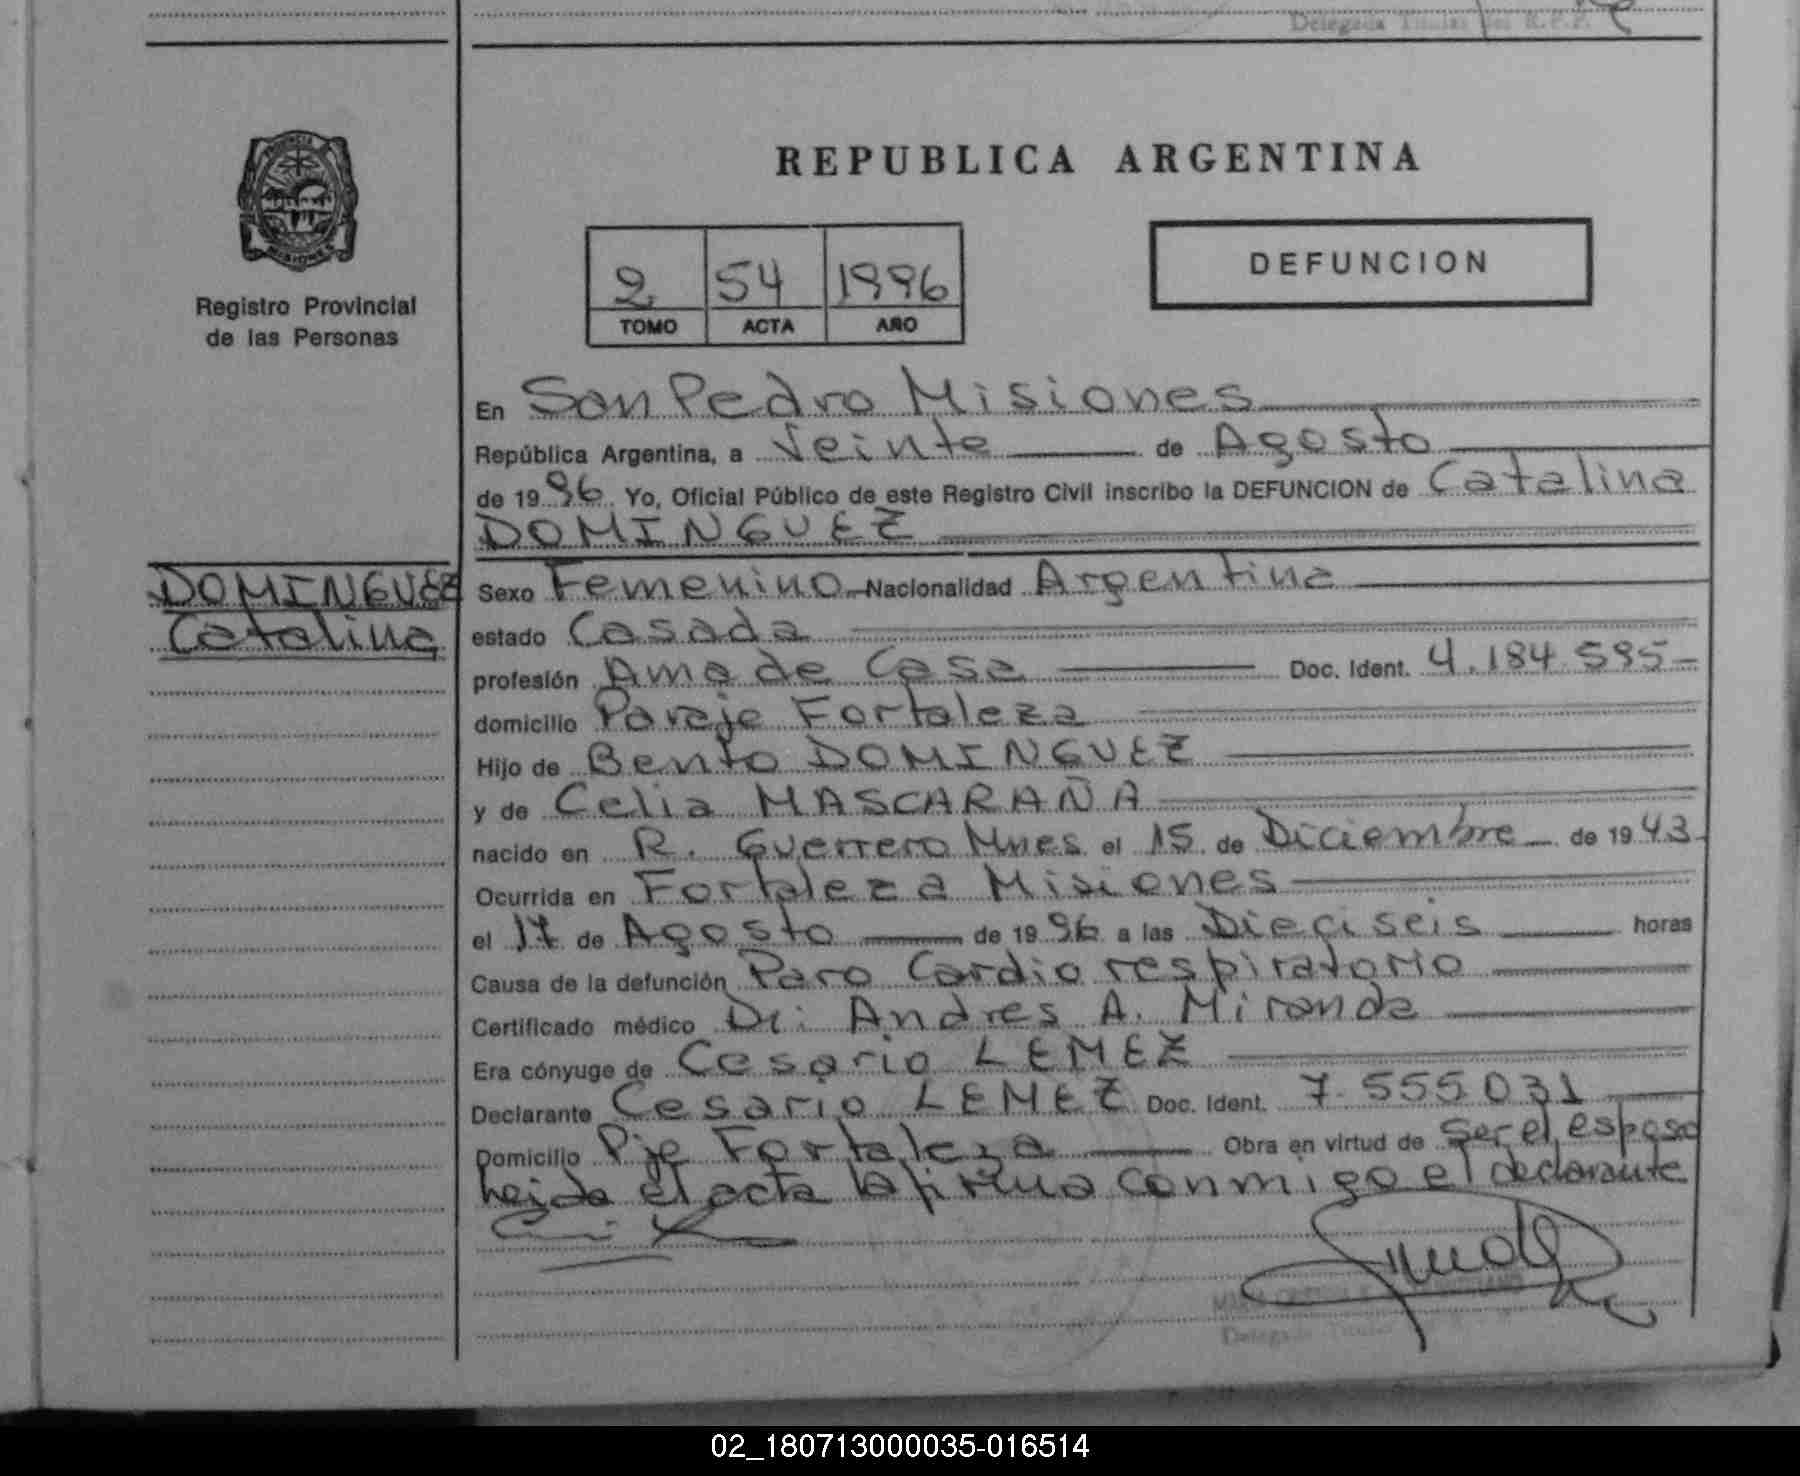 Delegada Titular del R.P.P.
PROVINCIA
MISIONES
Registro Provincial
de las Personas
REPUBLICA ARGENTINA
2 54 1996
TOMO ACTA AÑO
DEFUNCION
En San Pedro Misiones
República Argentina, a Veinte de Agosto
de 1996 Yo, Oficial Público de este Registro Civil inscribo la DEFUNCION de Catalina
DOMINGUEZ
DOMINGUEZ
Catalina
Sexo Femenino Nacionalidad Argentina
estado Casada
profesión Ama de Casa Doc. Ident. 4.184.595
domicilio Paraje Fortaleza
Hijo de Bento DOMINGUEZ
y de Celia MASCARAÑA
nacido en R. Guerrero Mnes el 15 de Diciembre de 1943
Ocurrida en Fortaleza Misiones
el 17 de Agosto de 1996 a las Dieciseis horas
Causa de la defunción Paro Cardio respiratorio
Certificado médico Dr. Andres A. Miranda
Era cónyuge de Cesario LEMEZ
Declarante Cesario LEMEZ Doc. Ident. 7.555.031
Domicilio Pje Fortaleza Obra en virtud de Ser el esposo
heida el acta la firma conmigo el declarante
Delegada Titular
02_180713000035-016514